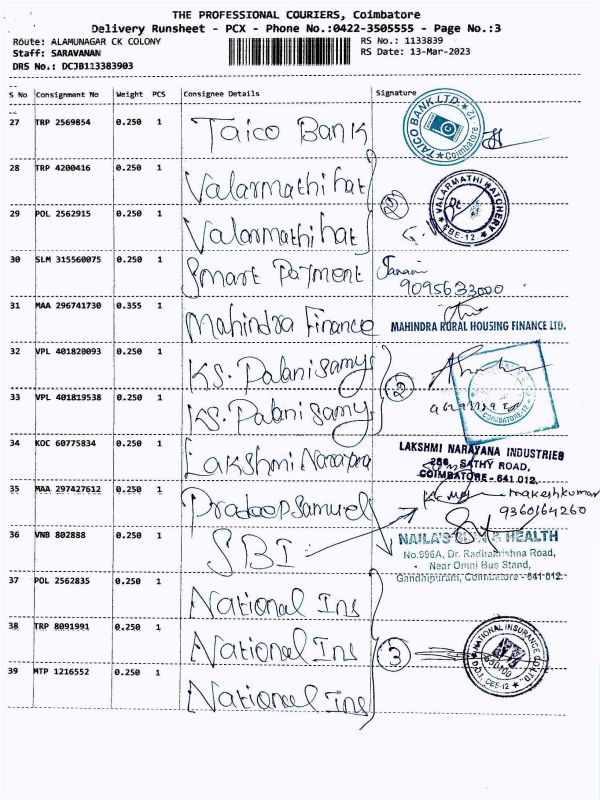 THE PROFESSIONAL COURIERS, Coimbatore
Delivery Runsheet - PCX - Phone No.:0422-3505555 - Page No.:3
Route: ALAMUNAGAR CK COLONY
RS No.: 1133839
Staff: SARAVANAN
RS Date: 13-Mar-2023
DRS No.: DCJB113383903
S No Consignment No Weight PCS Consignee Details Signature
27 TRP 2569854 0.250 1 Taico Bank
TAICO BANK LTD. Coimbatore 12
28 TRP 4200416 0.250 1 Valarmathi hat
2
VALARMATHI HATCHERY CBE-12
29 POL 2562915 0.250 1 Valarmathi hat
30 SLM 315560075 0.250 1 Smart Payment
9095633000
31 MAA 296741730 0.355 1 Mahindra Finance
MAHINDRA RURAL HOUSING FINANCE LTD.
32 VPL 401820093 0.250 1 KS. Palanisamy
2
33 VPL 401819538 0.250 1 KS. Palanisamy
COIMBATORE-12
34 KOC 60775834 0.250 1 Lakshmi Narayana
LAKSHMI NARAYANA INDUSTRIES
SATHY ROAD,
COIMBATORE - 641 012.
35 MAA 297427612 0.250 1 Pradeep Samuel
makeshkumar
9360164260
36 VNB 802888 0.250 1 SBI
NAILA'S & HEALTH
No.996A, Dr. Radhakrishna Road,
Near Omni Bus Stand,
Gandhipuram, Coimbatore - 641 012.
37 POL 2562835 0.250 1 National Ins
38 TRP 8091991 0.250 1 National Ins
3
NATIONAL INSURANCE CO. LTD. CBE-12
39 MTP 1216552 0.250 1 National Ins